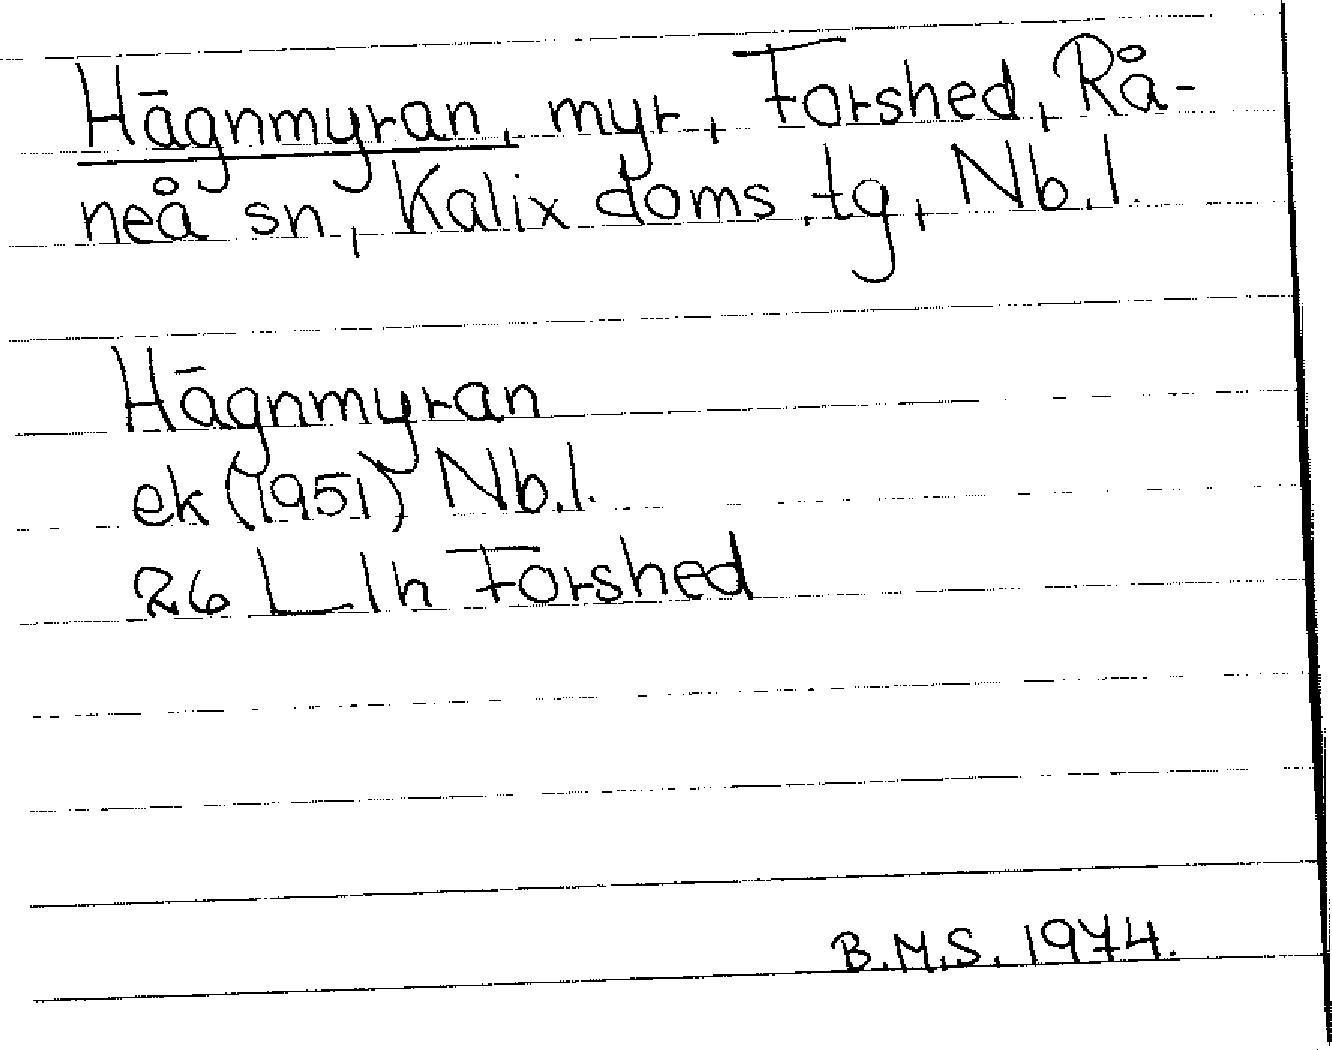 Hägnmyran, myr, Forshed, Rå-
neå sn, Kalix doms.tg, Nb.l.
Hägnmyran
ek (1951) Nb.l.
26 L lh Forshed
B.M.S. 1974.